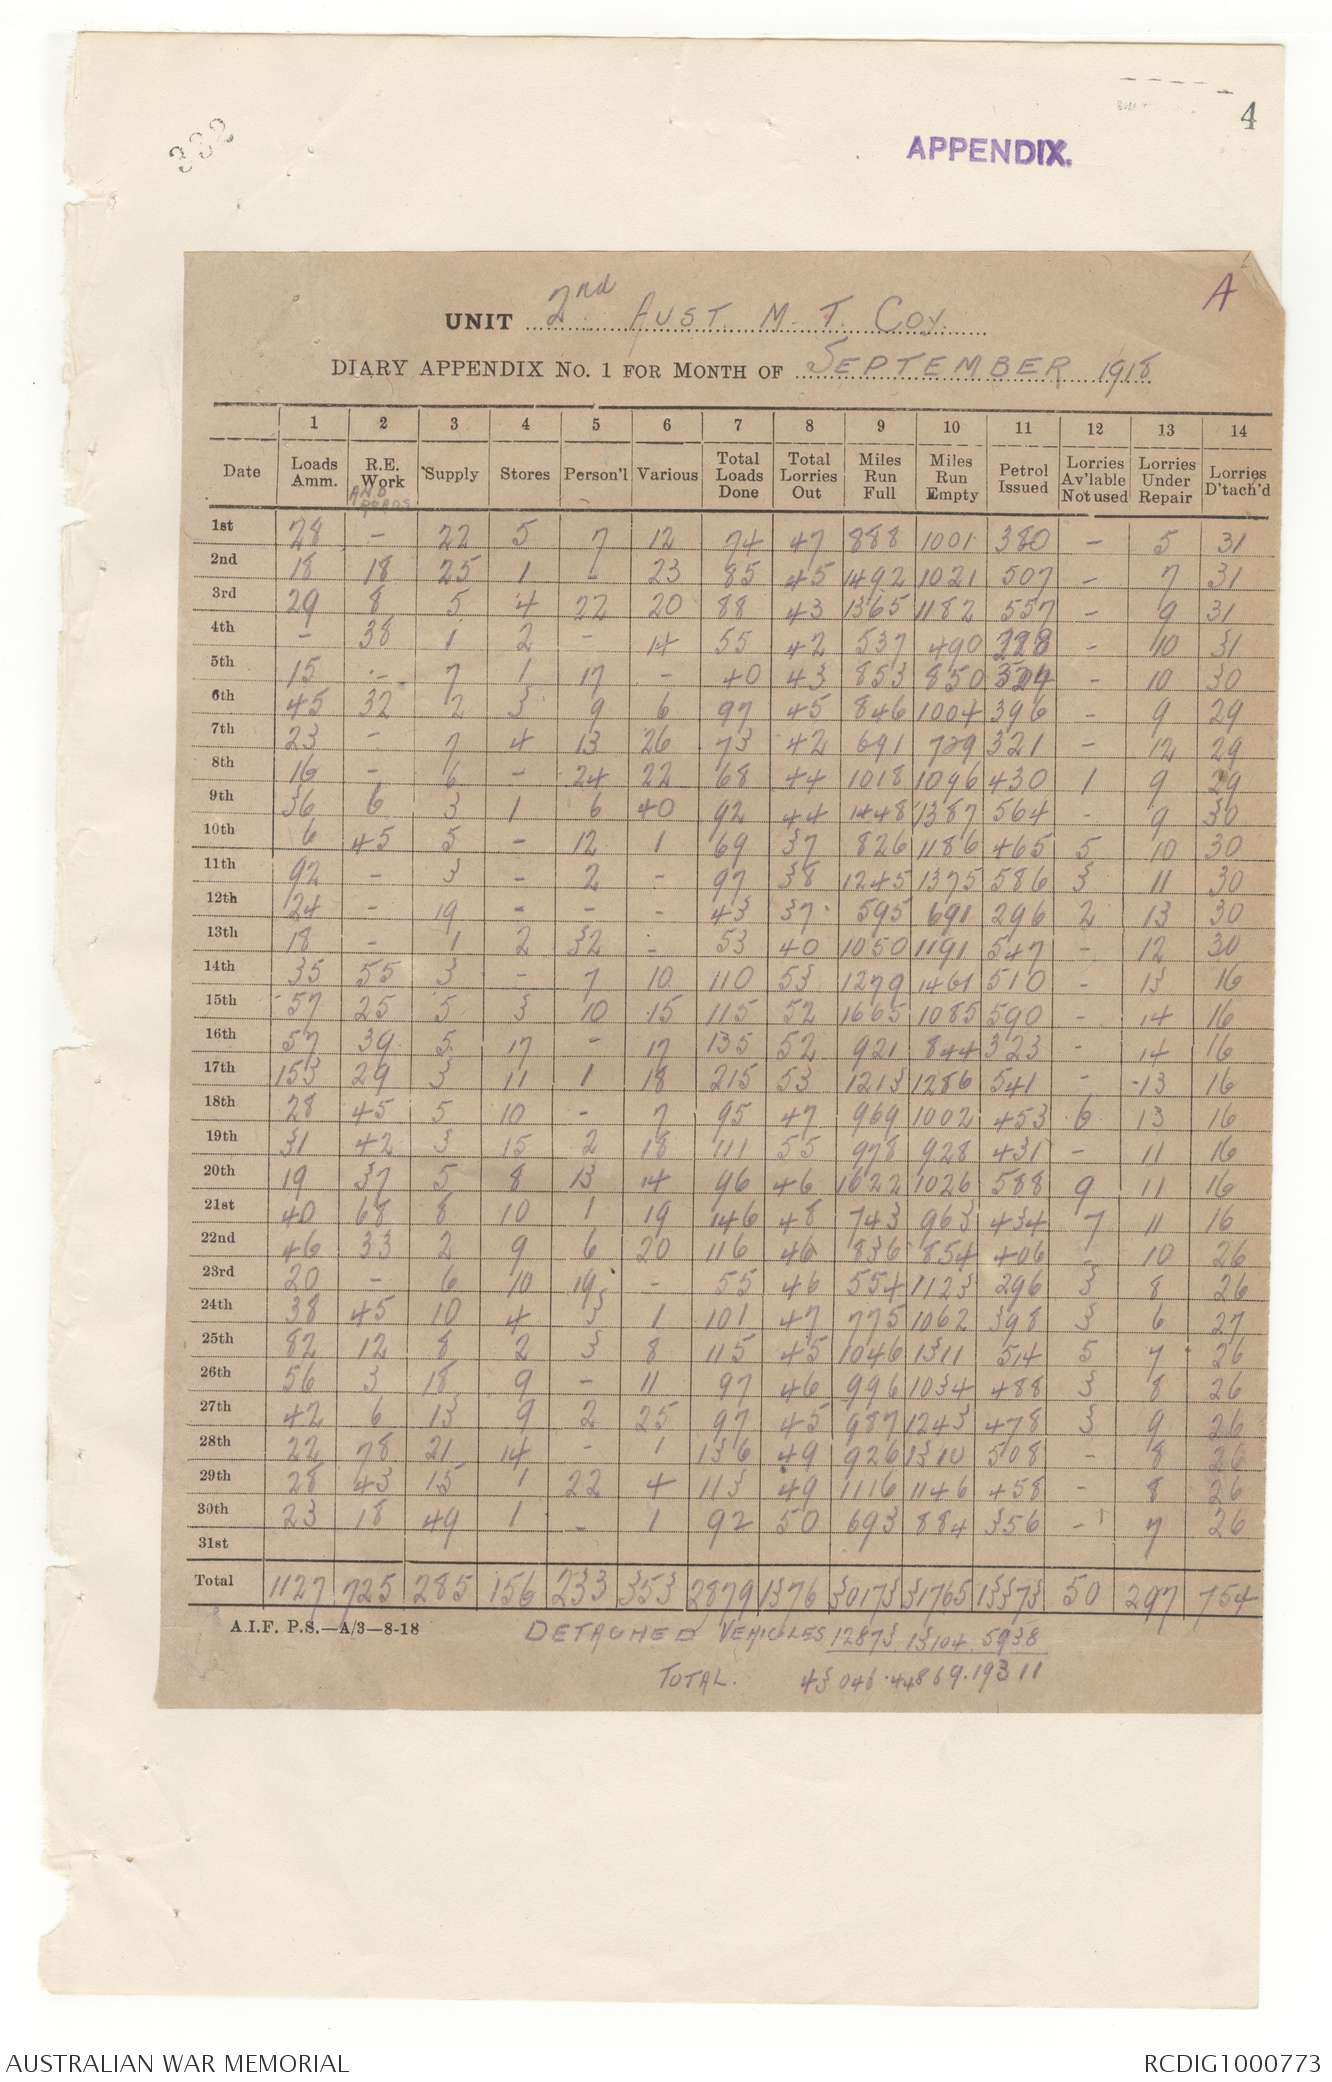 4
332
APPENDIX.
A
UNIT 2nd AUST. M. T. COY.
DIARY APPENDIX No. 1 FOR MONTH OF SEPTEMBER 1918
1 2 3 4 5 6 7 8 9 10 11 12 13 14
Date Loads Amm. R.E. Work AND ROADS Supply Stores Person'l Various Total Loads Done Total Lorries Out Miles Run Full Miles Run Empty Petrol Issued Lorries Av'lable Not used Lorries Under Repair Lorries D'tach'd
1st 28 - 22 5 7 12 74 47 888 1001 380 - 5 31
2nd 18 18 25 1 - 23 85 45 1492 1021 507 - 7 31
3rd 29 8 5 4 22 20 88 43 1365 1182 557 - 9 31
4th - 38 1 2 - 14 55 42 537 490 228 - 10 31
5th 15 - 7 1 17 - 40 43 853 850 324 - 10 30
6th 45 32 2 3 9 6 97 45 846 1004 396 - 9 29
7th 23 - 7 4 13 26 73 42 691 729 321 - 12 29
8th 16 - 6 - 24 22 68 44 1018 1096 430 1 9 29
9th 36 6 3 1 6 40 92 44 1448 1387 564 - 9 30
10th 6 45 5 - 12 1 69 37 826 1186 465 5 10 30
11th 92 - 3 - 2 - 97 38 1245 1375 586 3 11 30
12th 24 - 19 - - - 43 37 595 691 296 2 13 30
13th 18 - 1 2 32 - 53 40 1050 1191 547 - 12 30
14th 35 55 3 - 7 10 110 53 1279 1461 510 - 13 16
15th 57 25 5 3 10 15 115 52 1665 1085 590 - 14 16
16th 57 39 5 17 - 17 135 52 921 844 323 - 14 16
17th 153 29 3 11 1 18 215 53 1213 1286 541 - 13 16
18th 28 45 5 10 - 7 95 47 969 1002 453 6 13 16
19th 31 42 3 15 2 18 111 55 978 928 431 - 11 16
20th 19 37 5 8 13 14 96 46 1622 1026 588 9 11 16
21st 40 68 8 10 1 19 146 48 743 963 434 7 11 16
22nd 46 33 2 9 6 20 116 46 836 854 406 10 26
23rd 20 - 6 10 19 - 55 46 554 1123 296 3 8 26
24th 38 45 10 4 3 1 101 47 775 1062 398 3 6 27
25th 82 12 8 2 3 8 115 45 1046 1311 514 5 7 26
26th 56 3 18 9 - 11 97 46 996 1034 488 3 8 26
27th 42 6 13 9 2 25 97 45 987 1243 478 3 9 26
28th 22 78 21 14 - 1 136 49 926 1310 508 - 8 26
29th 28 43 15 1 22 4 113 49 1116 1146 458 - 8 26
30th 23 18 49 1 - 1 92 50 693 884 356 - 7 26
31st
Total 1127 725 285 156 233 353 2879 1376 30173 31765 13373 50 297 754
A.I.F. P.S.—A/3—8-18
DETACHED VEHICLES 12873. 13104. 5938
TOTAL. 43046. 44869. 19311
AUSTRALIAN WAR MEMORIAL
RCDIG1000773